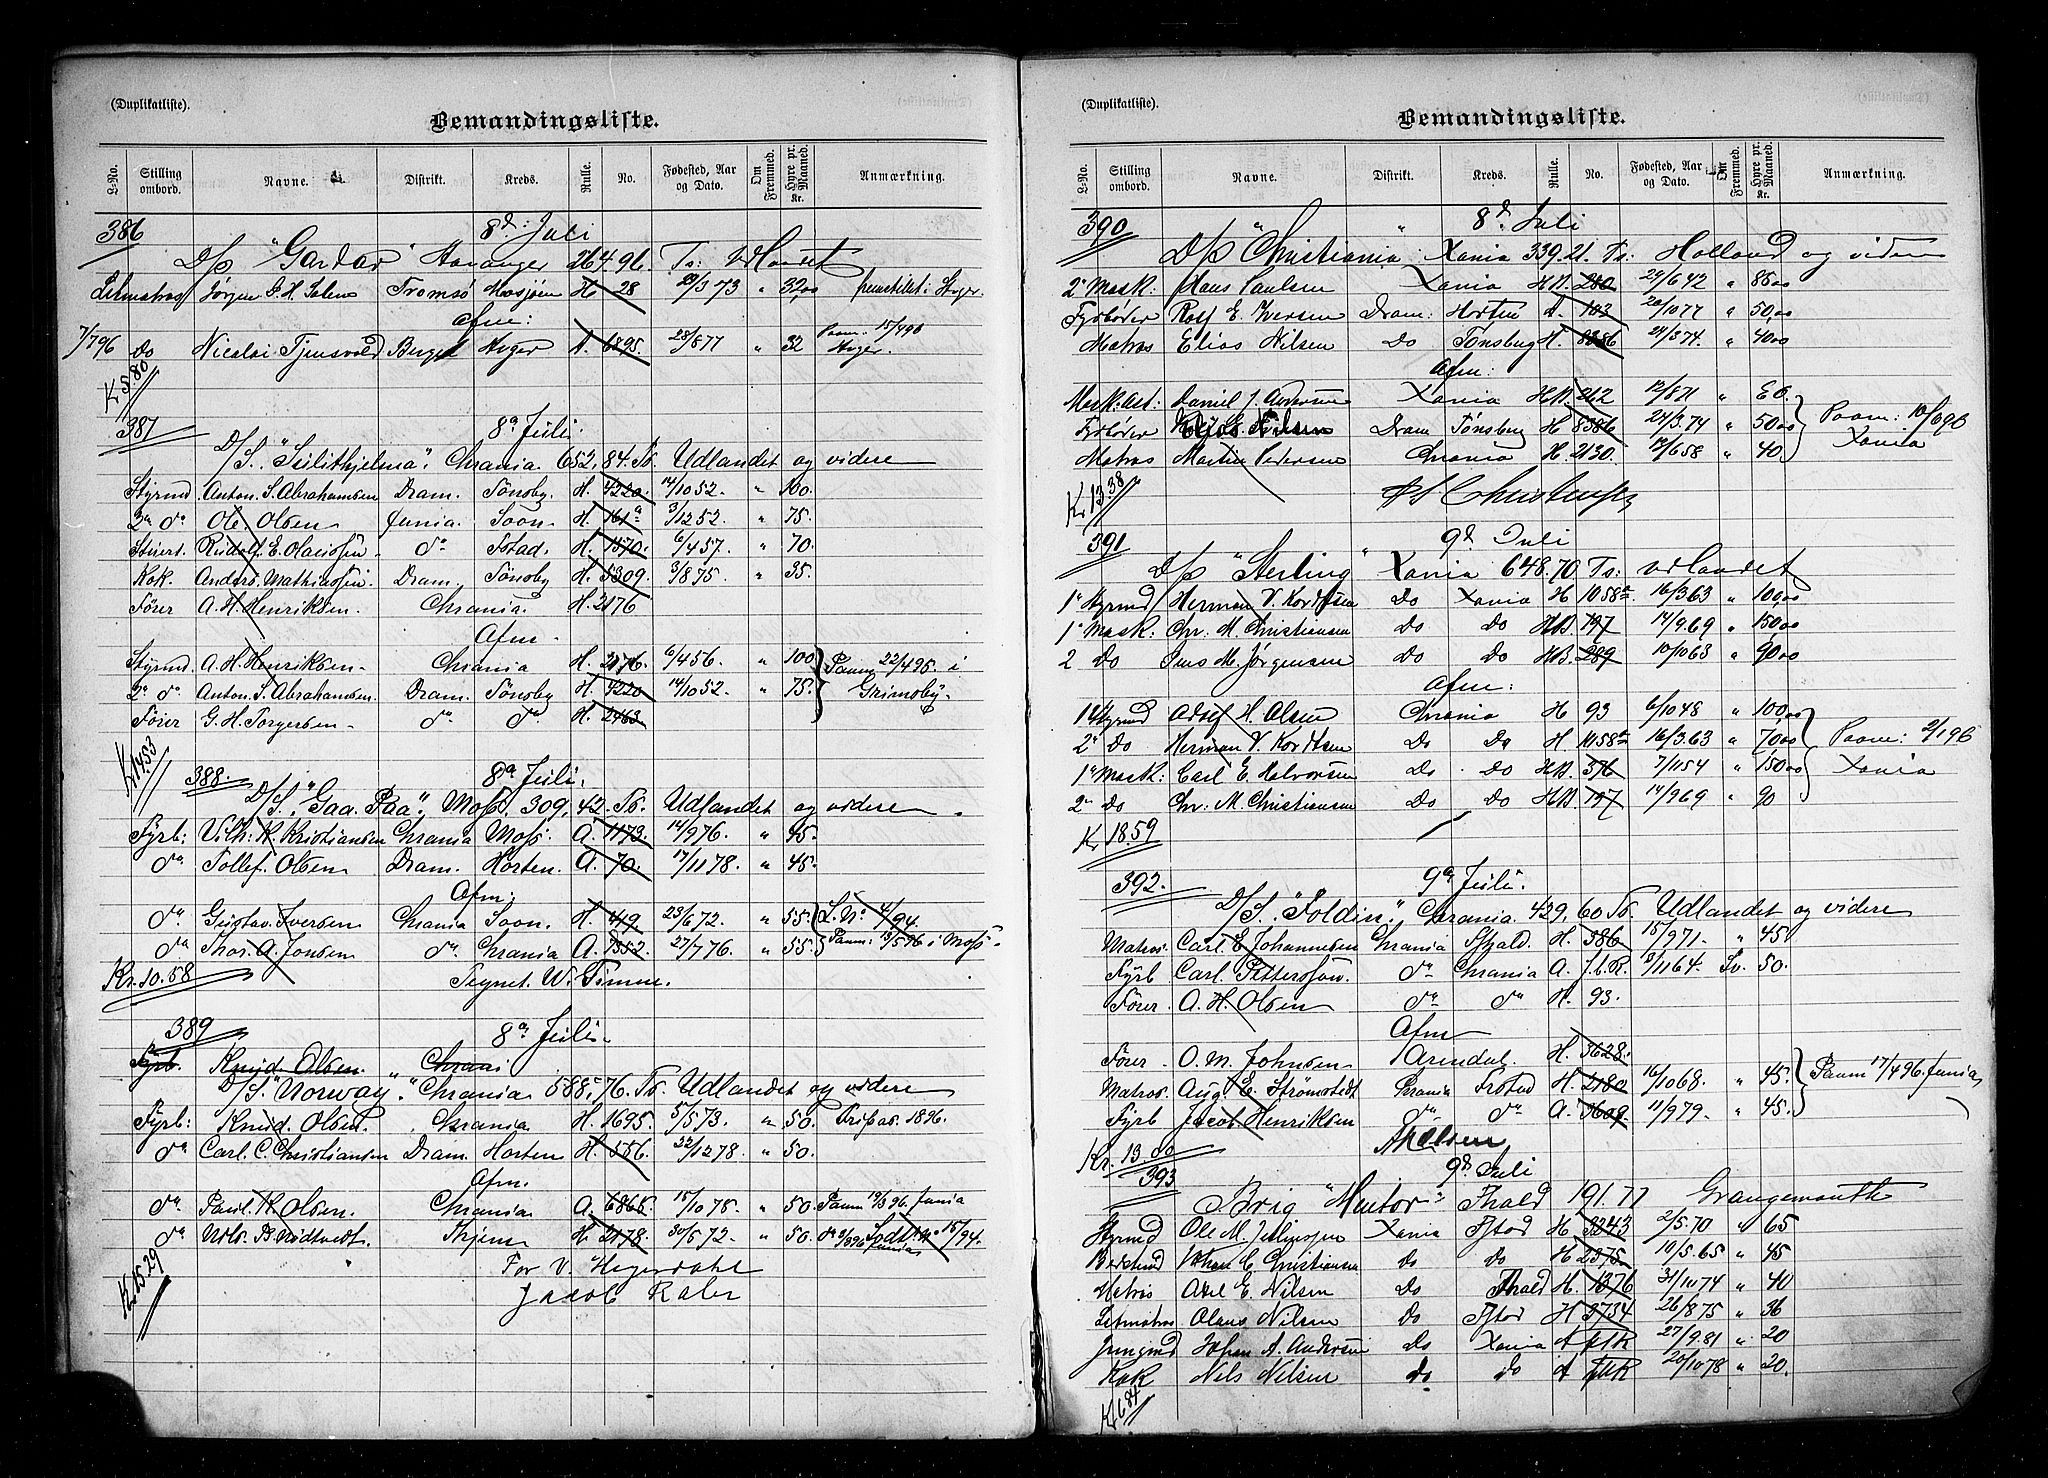 (Duplikatliste).
Bemandingsliste.
L-No. Stilling ombord. Navne. Distrikt. Kreds. Rulle. No. Fødested, Aar og Dato. Om Fremmed. Hyre pr. Maaned. Kr. Anmærkning.
386 8d: Juli
D/p "Gardar" Stavanger 264.96. Ts: Udlandet
Letmatros Jørgen P. H. Mosjøen Tromsø H 28 29/3 73 " 32,00
Afm:
7/7 96 Do Nicolai Tjensvold Bergen A. 6895. 28/8 77 " 32 Paam: 15/4 96
Kr 5.80
387 8de Juli.
D/S. "Sulithjelma". Chrania 652,84. Ts. Udlandet og videre
Styrmd. Anton. S. Abrahamsen Dram. Tönsbg. H. 4220. 14/10 52. " 100.
2n do Ole Olsen Xania. Soon. H. 161a 3/12 52. " 75.
Stuert. Rudolf. E. Olaussen do Fstad. H. 1570. 6/4 57. " 70.
Kok. Anders. Mathiassen. Dram. Tönsbg H. 5309. 3/8 75. " 35.
Förer A. H. Henriksen. Chrania. H. 2176
Afm.
Styrmd. A. H. Henriksen. Chrania H. 2176. 6/4 56. " 100. Paam 22/4 95. i
2n do Anton. S. Abrahamsen. Dram. Tönsbg H. 4220 14/10 52. " 75. Grimsby.
Förer G. H. Torgersen. do do H. 2463
Kr. 14.53
388. 8de Juli.
D/S. "Gaa Paa", Moss. 309,42. Ts. Udlandet og videre.
Fyrb: Vilh: K. Kristiansen Chrania Moss. A. 1173. 14/9 76. " 45.
do Tollef. Olsen Dram. Horten. A. 70. 17/11 78. " 45.
Afm.
do Gustav. Iversen Chrania Soon. H. 419 23/6 72. " 55. L. No 4/94.
do Thos. A. Jonsen do Chrania A. 7352. 27/7 76. " 55. Paam: 13/5 96 i Moss.
Kr. 10.58 Tegnet. W. Timme.
389 8de Juli.
Fyrb. Knud. Olsen. Chrania
D/S. "Norway". Chrania 588,76. Ts. Udlandet og videre
Fyrb: Knud. Olsen. Chrania H. 1695. 5/5 73. " 50. Prisas. 1896.
do Carl. C. Christiansen Dram. Horten H. 586. 22/12 78. " 50.
Afm.
do Paul. K. Olsen. Chrania A. 6868. 15/10 75. " 50. Paam 19/3 96. Xania
do Nils. B. Nidtvedt. Skjem H. 2178. 30/5 72. " 50. do 15/94.
Kr. 15.29 For V. Hegerdahl
Jacob Kaler
(Duplikatliste).
Bemandingsliste.
L-No. Stilling ombord. Navne. Distrikt. Kreds. Rulle. No. Fødested, Aar og Dato. Om Fremmed. Hyre pr. Maaned. Kr. Anmærkning.
390 8d Juli
D/p "Christiania" Xania 339.21. Ts: Holland og videre
2n Mask: Hans Paulsen Xania HM. 280 29/6 42 " 85,00
Fyrbøder Rolf E. Iversen Dram: Horten A. 103 20/10 77 " 50,00
Matros Elias Nilsen Do Tønsberg H. 8386 24/3 74. " 40,00
Afm:
Mask.Ast: Daniel J. Andersen Xania HM. 262 12/8 71 " 60.
Fyrbøder Elias Nilsen Dram Tønsberg H 8386 24/3.74 " 50,00 Paam: 10/6 96
Matros Martin Pedersen Chrania H. 2130. 12/6 58 " 40. Xania
Kr 13.38 P S Christensen
391 9d Juli
D/p "Sterling" Xania 648.70 Ts: Udlandet
1n Styrmd Herman V. Kordtsen Do Xania H 1058a 16/3.63 " 100,00
1n Mask: Chr. M. Christiansen Do Do HM. 797 14/9.69 " 150,00
2 Do Jens M. Jørgensen Do Do HM. 289 10/10 63 " 90,00
Afm:
1n Styrmd Adolf H. Olsen Chrania H 93 6/10 48 " 100,00
2n Do Herman V. Kordtsen Do Do H 1058a 16/3.63 " 70,00 Paam: 2/1 96
1n Mask: Carl E. Halvorsen Do Do HM. 376 7/11 54 " 150,00 Xania
2n Do Chr: M. Christiansen Do Do HM. 797 14/9 69 " 90
Kr. 18.59
392. 9de Juli.
D/S. "Foldin". Chrania. 429,60 Ts. Udlandet og videre
Matros. Carl. E. Johannesen Chrania Fhald. H. 386 15/9 71. " 45
Fyrb Carl. Pettersson. do Chrania A. J.b.R. 8/11 64. Sv. 50.
Förer A. H. Olsen do do H. 93.
Afm
Förer. O. M. Johnsen Arendal. H. 3628.
Matros. Aug. E. Strömstedt Chrania Frstad H. 2180 16/10 68. " 45. Paam 17/4 96. Xania
Fyrb Jacob Henriksen do do A. 3609. 11/9 79. " 45.
Kr. 13.00 AHOlsen
393 9d Juli
Brig "Mentor" Fhald 191.77 Grangemouth
Styrmd Ole M. Xania Fstad H. 3243 2/5.70 " 65
Bestmd Johan C. Christiansen do do H. 2375. 10/5.65 " 45
Matros Axel E. Nilsen Do Fhald H. 1376 31/10 74 " 40
Letmatros Olaus Nilsen do Fstad H 3734 26/8 75 " 36
Jungmd Johan A. Andersen Do Xania A JMR 27/9.81 " 20
Kok Nils Nilsen do do A JMR 20/10 78 " 20.
Kr 6.84